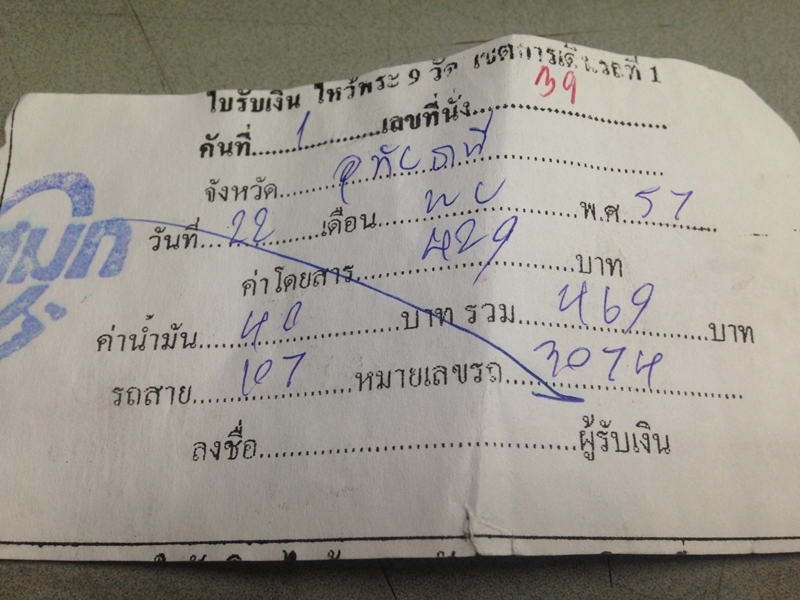 ใบรับเงิน ไหว้พระ 9 วัด เขตการเดินรถที่ 1
คันที่ 1 เลขที่นั่ง 39
จังหวัด อุทัยธานี
วันที่ 22 เดือน พย พ.ศ. 57
ค่าโดยสาร 429 บาท
ค่าน้ำมัน 40 บาท รวม 469 บาท
รถสาย 107 หมายเลขรถ 3074
ลงชื่อ ผู้รับเงิน